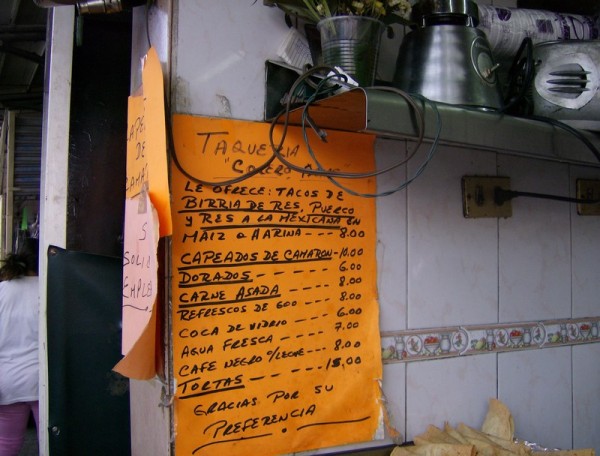 TAQUERIA
LE OFRECE: TACOS DE
BIRRIA DE RES, PUERCO
Y RES A LA MEXICANA EN
MAIZ O HARINA --- 8.00
CAPEADOS DE CAMARON - 10.00
DORADOS - - - - - 6.00
CARNE ASADA - - - - 8.00
REFRESCOS DE 600 - - - 8.00
COCA DE VIDRIO - - - - 6.00
AGUA FRESCA - - - - - 7.00
CAFE NEGRO O/LECHE - - - 8.00
TORTAS - - - - - - 15.00
GRACIAS POR SU
PREFERENCIA
DE
SOLI
EMPLE